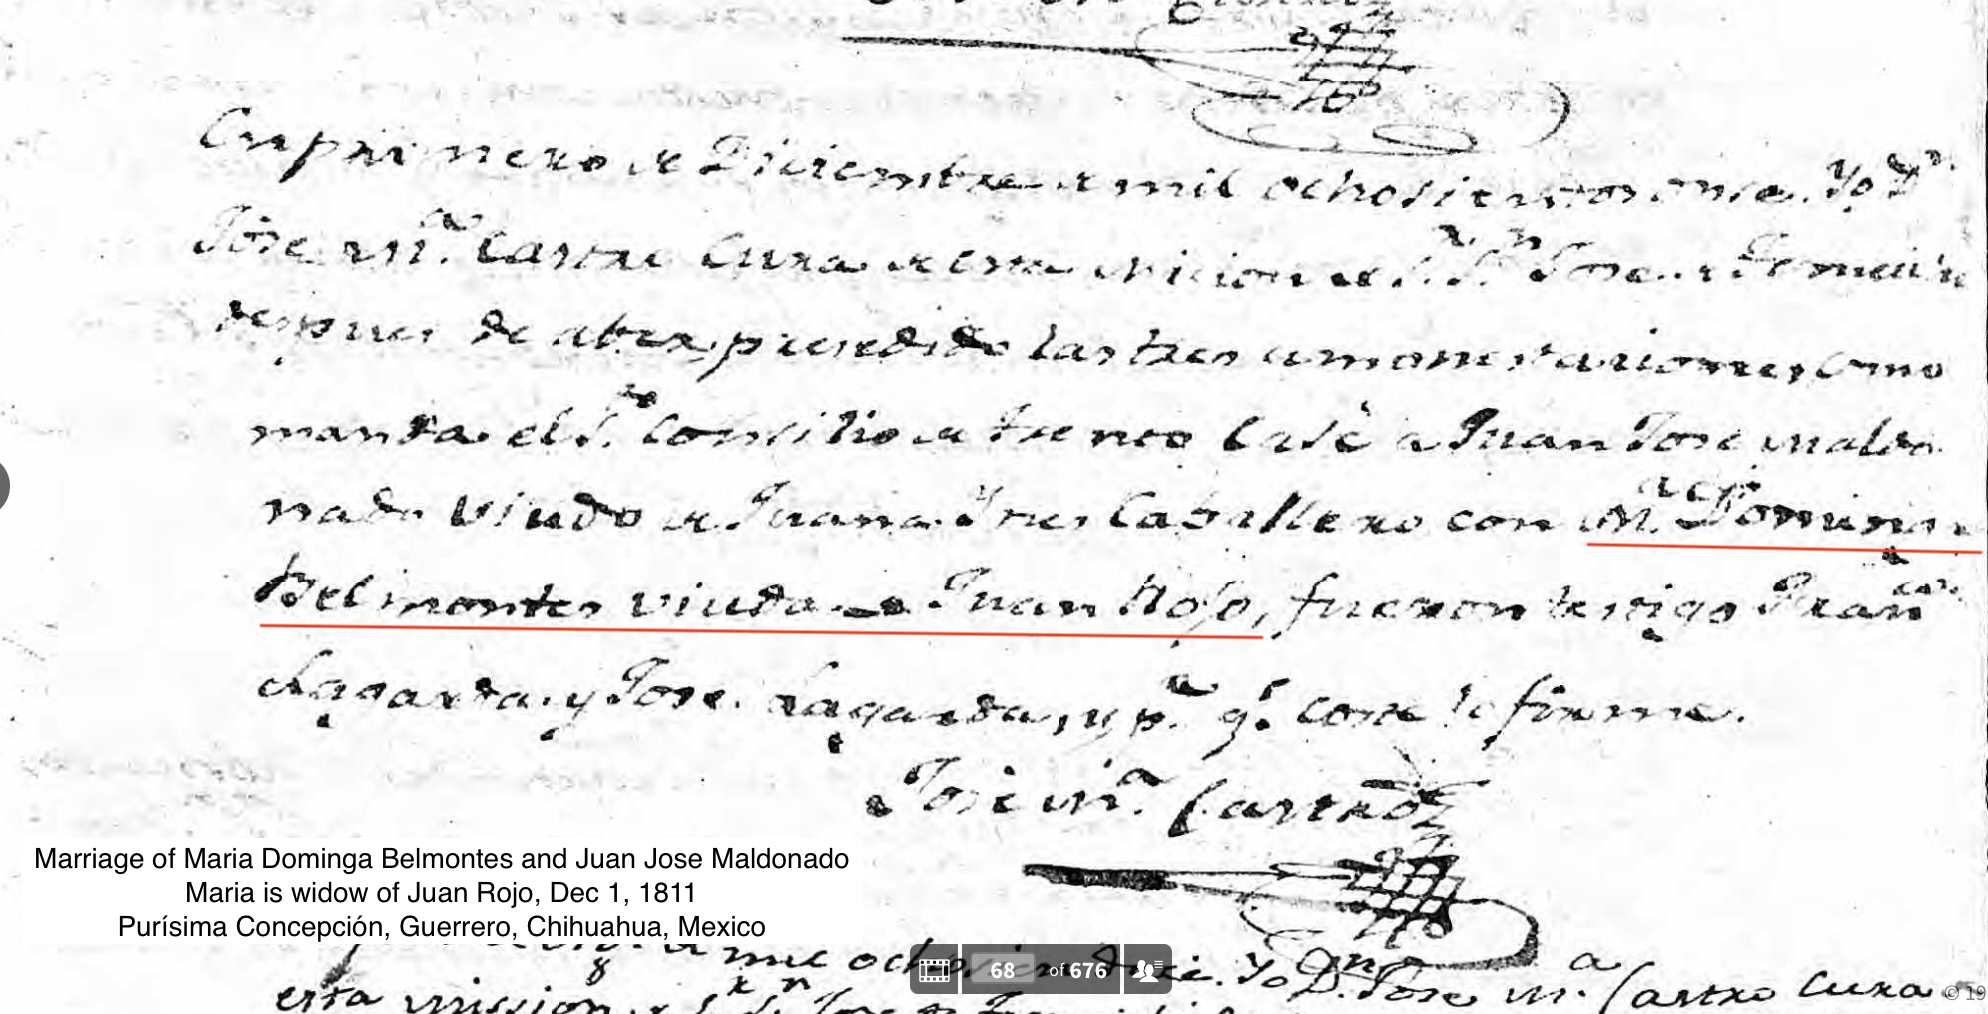 En primero de Diciembre de mil ochosientos onse. Yo Dn
Jose Ma. Castro Cura de esta Micion de S. Sr. Sn Jose de Temeichi
despues de aber presedido las tres amonestaciones, como
manda el Sto. Consilio de Trento Casè a Juan Jose Maldo
nado Viudo de Juana Ines Caballero con Ma. Dominga
Belmontes viuda de Juan Rojo, fueron testigo Franco
Lagarda. y Jose. Lagarda, y pa. qe. coste lo firme.
Jose Ma. Castro
Marriage of Maria Dominga Belmontes and Juan Jose Maldonado
Maria is widow of Juan Rojo, Dec 1, 1811
Purísima Concepción, Guerrero, Chihuahua, Mexico
de mil ocho Yo Dn. Jose Ma. Castro Cura
esta mission de Jose de
68 of 676
© 19